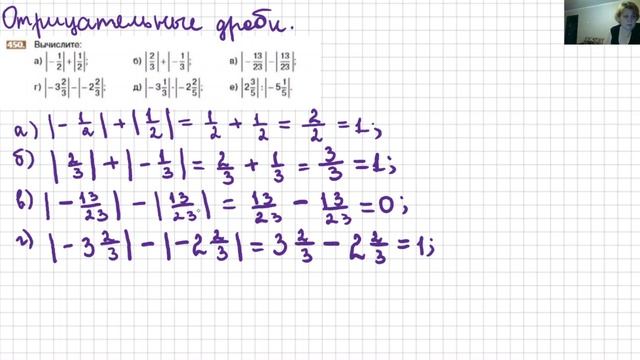 Отрицательные дроби.
450. Вычислите:
а) |-1/2| + |1/2|; б) |2/3| + |-1/3|; в) |-13/23| - |13/23|;
г) |-3 2/3| - |-2 2/3|; д) |-3 1/3| · |-2 2/5|; е) |2 3/5| : |-5 1/5|.
а) |-1/2| + |1/2| = 1/2 + 1/2 = 2/2 = 1;
б) |2/3| + |-1/3| = 2/3 + 1/3 = 3/3 = 1;
в) |-13/23| - |13/23| = 13/23 - 13/23 = 0;
г) |-3 2/3| - |-2 2/3| = 3 2/3 - 2 2/3 = 1;